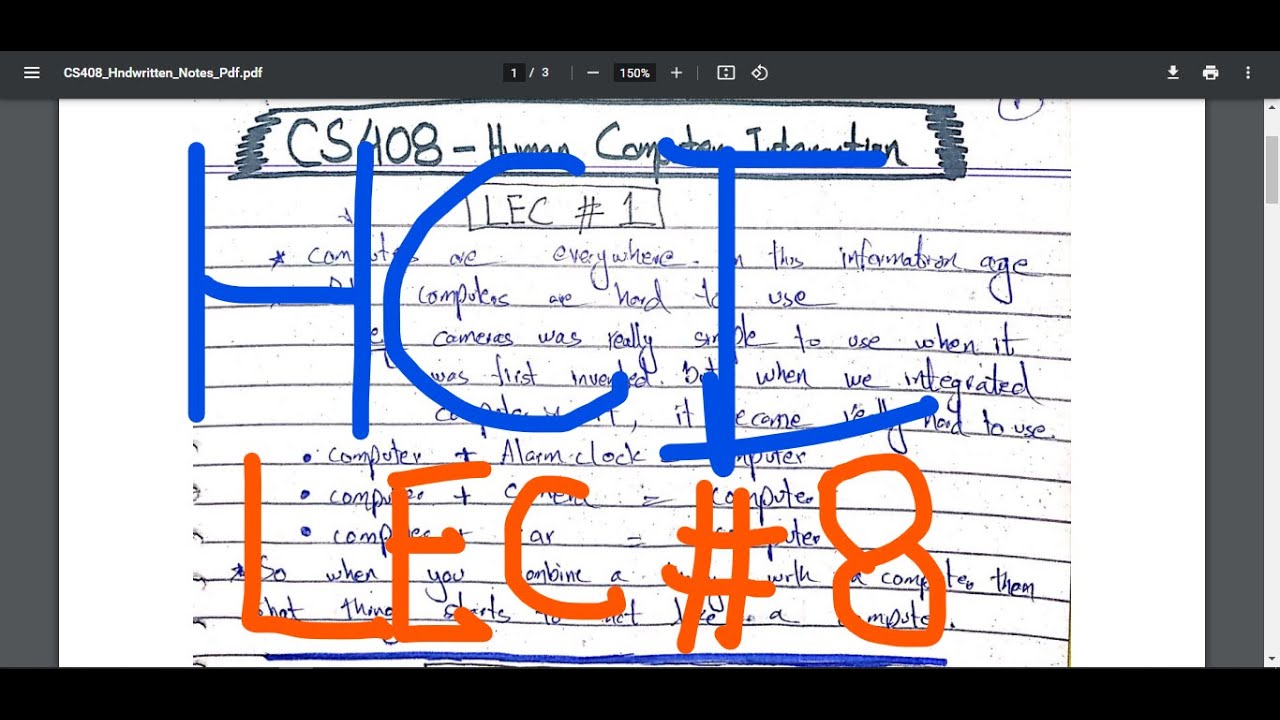 CS408_Hndwritten_Notes_Pdf.pdf
1 / 3
150%
CS408 - Human Computer Interaction
LEC # 1
HCI
* computers are everywhere. In this information age
computers are hard to use
cameras was really simple to use when it
was first invented. But when we integrated
computer it, it became really hard to use.
• computer + Alarm clock = computer
• computer + camera = computer
• computer + car = computer
* So when you combine a thing with a computer then
that thing starts to act like a computer.
LEC #8